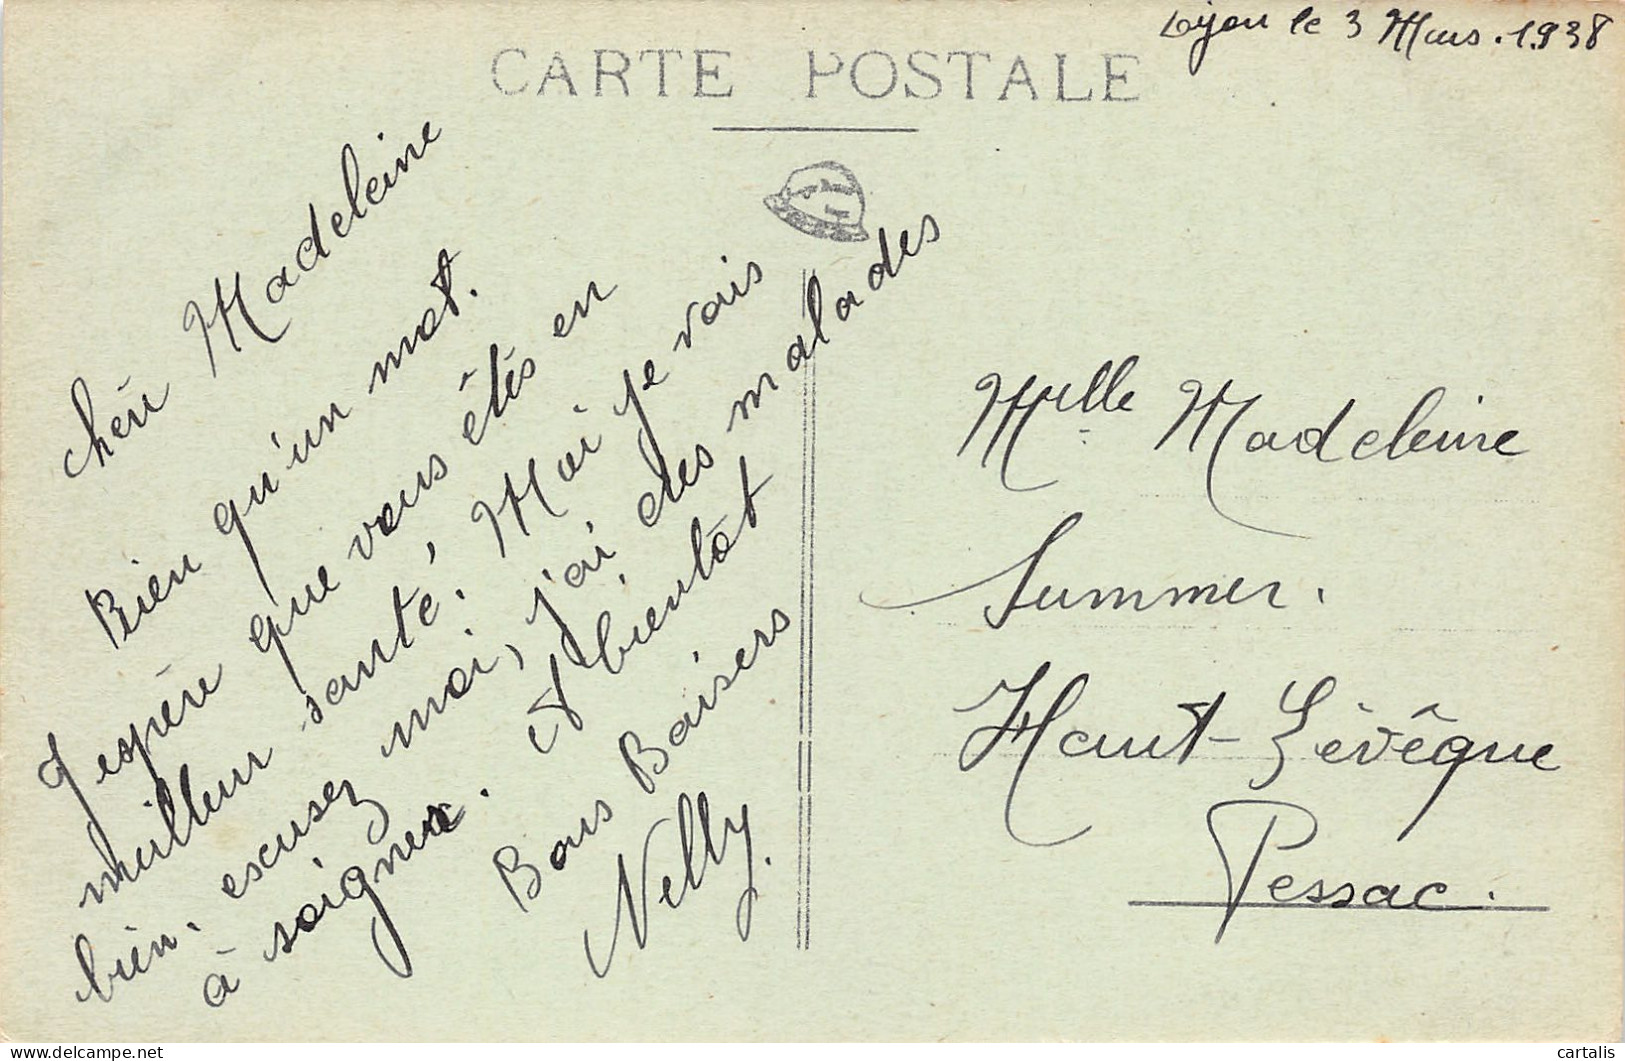 Lyon le 3 Mars . 1938
CARTE POSTALE
chéri Madeleine
Bien qu'un mot.
J espère que vous êtes en
meilleur santé. Moi je vais
bien. escusez moi, j'ai des malades
à soigner. et bientôt
Bons Baisers
Nelly.
Mulle Madeleine
Summer.
Haut-Lévêque
Pessac.
delcampe.net
cartalis